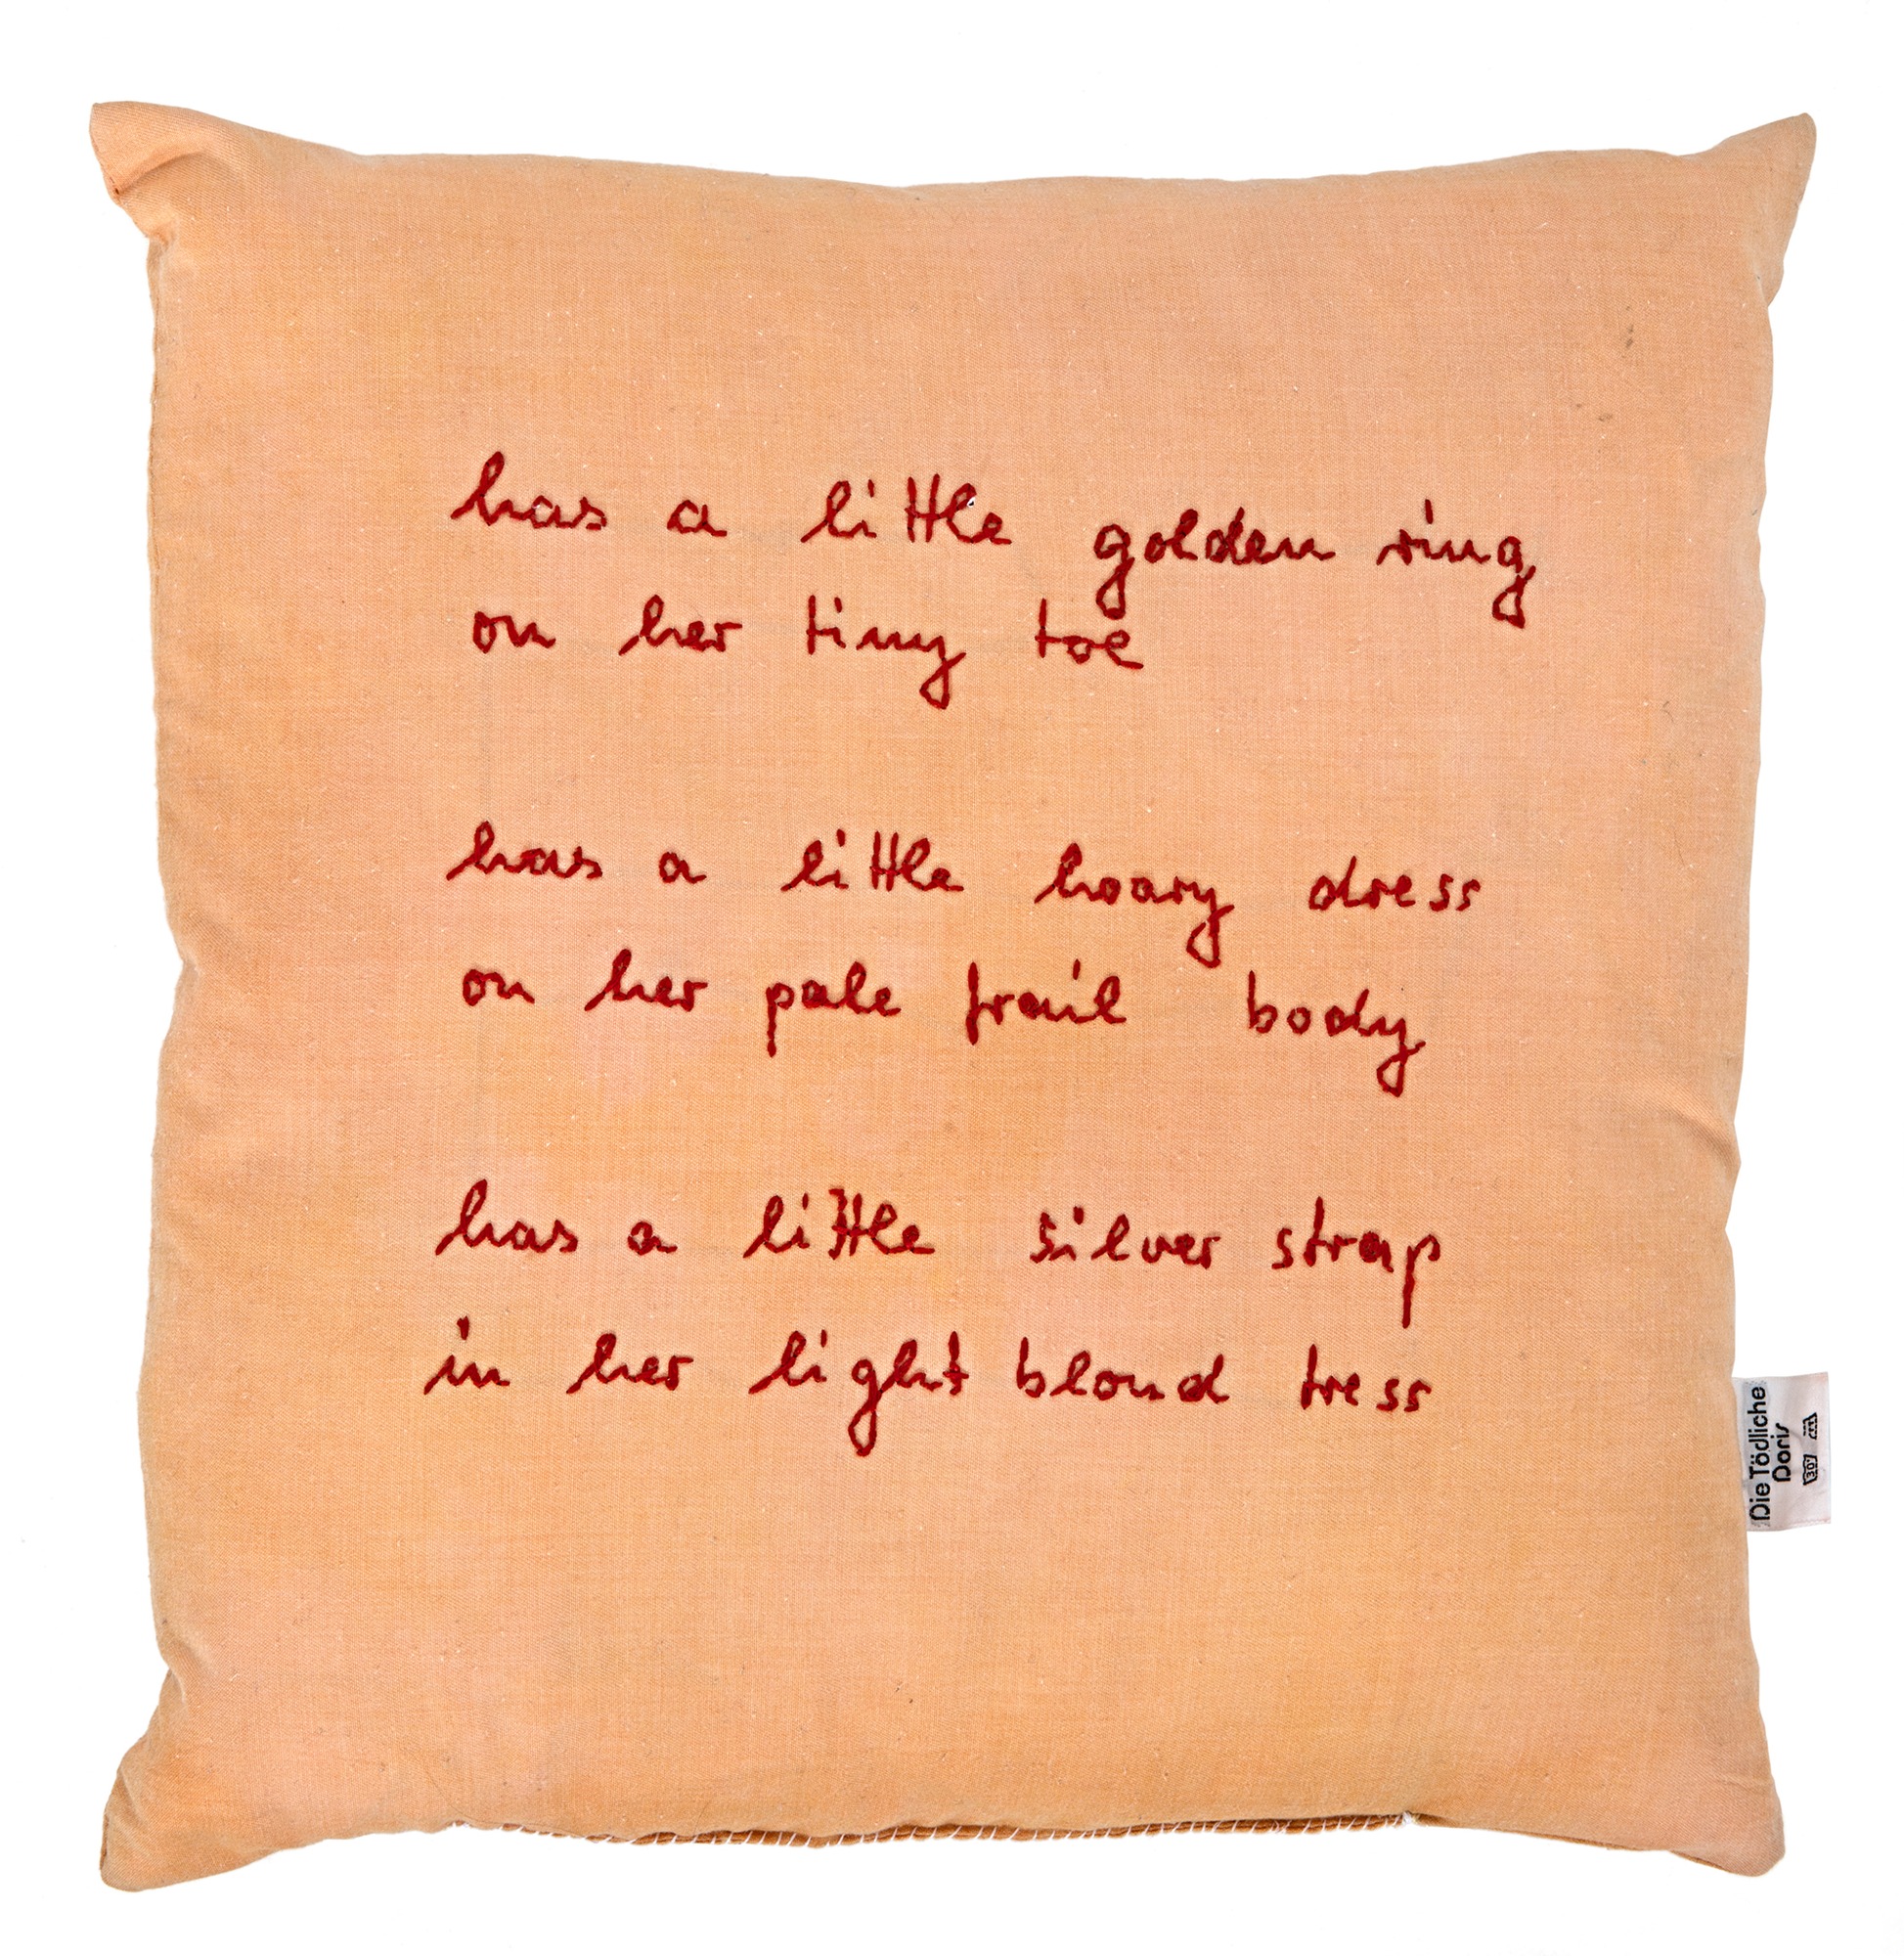 has a little golden ring
on her tiny toe
has a little hoary dress
on her pale frail body
has a little silver strap
in her light blond tress
Die Tödliche
Doris